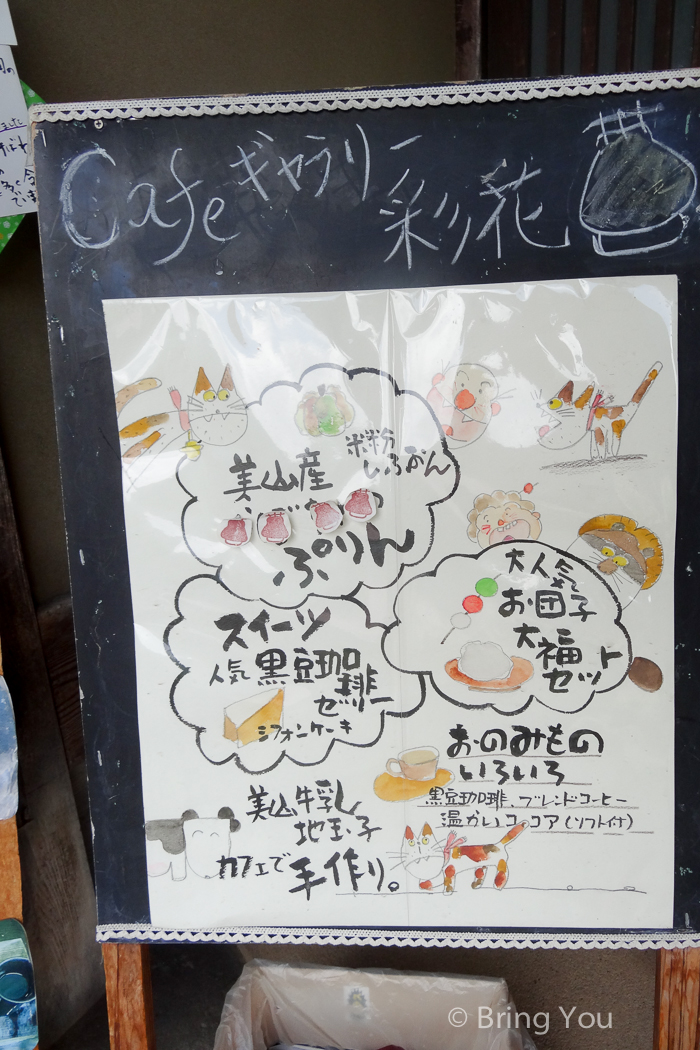 Cafe ギャラリー 彩花
米粉
美山産
ぷりん
大人気
お団子
大福
セット
スイーツ
人気 黒豆珈琲
ゼリー
シフォンケーキ
おのみもの
いろいろ
黒豆珈琲、ブレンドコーヒー
温かいココア(ソフト付)
美山牛乳
地玉子
カフェで 手作り。
© Bring You